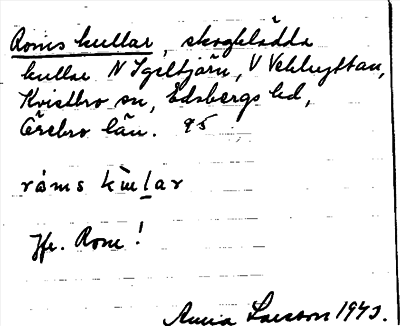 Roms kullar, skogklädda
kullar N Igeltjärn, V Vekhyttan,
Kvistbro sn, Edsbergs hd,
Örebro län. 95
róms kùlar
Jfr. Rom!
Anna Larsson 1943.